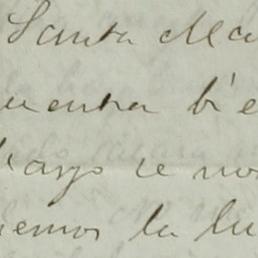 Santa Ma
uentra bie
Mayo se no
nemos la lu